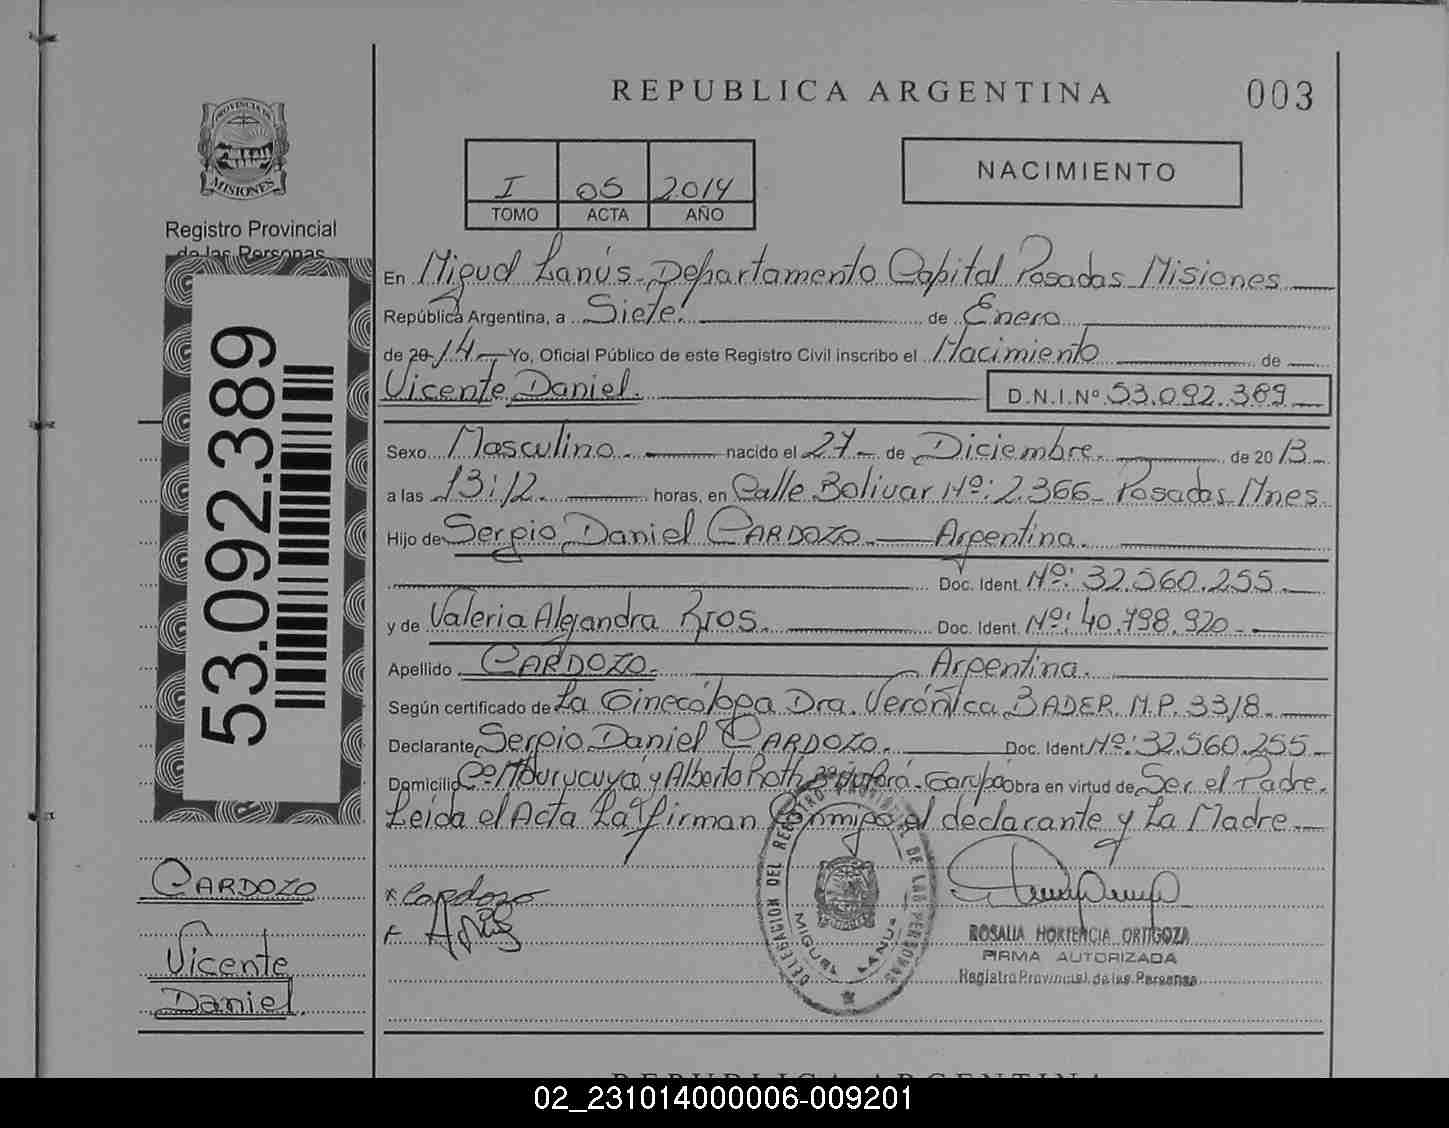 REPUBLICA ARGENTINA
003
PROVINCIA DE
MISIONES
Registro Provincial
de las Personas
I 05 2014
TOMO ACTA AÑO
NACIMIENTO
En Miguel Lanús - Departamento Capital Posadas Misiones
República Argentina, a Siete. de Enero
de 2014 Yo, Oficial Público de este Registro Civil inscribo el Nacimiento de
Vicente Daniel.
D.N.I.Nº 53.092.389
53.092.389
Sexo Masculino. nacido el 27 de Diciembre. de 2013
a las 13:12 horas, en Calle Bolivar Nº: 2.366 - Posadas Mnes.
Hijo de Sergio Daniel CARDOZO. Argentina.
Doc. Ident. Nº: 32.560.255.
y de Valeria Alejandra Rios. Doc. Ident. Nº: 40.798.920
Apellido CARDOZO. Argentina.
Según certificado de La Ginecóloga Dra. Verónica BADER. M.P. 3318.
Declarante Sergio Daniel CARDOZO. Doc. Ident Nº: 32.560.255
Domicilio Mburucuyá y Alberto Roth Garupá Obra en virtud de Ser el Padre.
Leída el Acta La firman Conmigo el declarante y La Madre
CARDOZO
Vicente
Daniel.
Cardozo
DELEGACION DEL REGISTRO PROVINCIAL DE LAS PERSONAS
MIGUEL LANUS
ROSALIA HORTENCIA ORTIGOZA
FIRMA AUTORIZADA
Registro Provincial de las Personas
REPUBLICA ARGENTINA
02_231014000006-009201